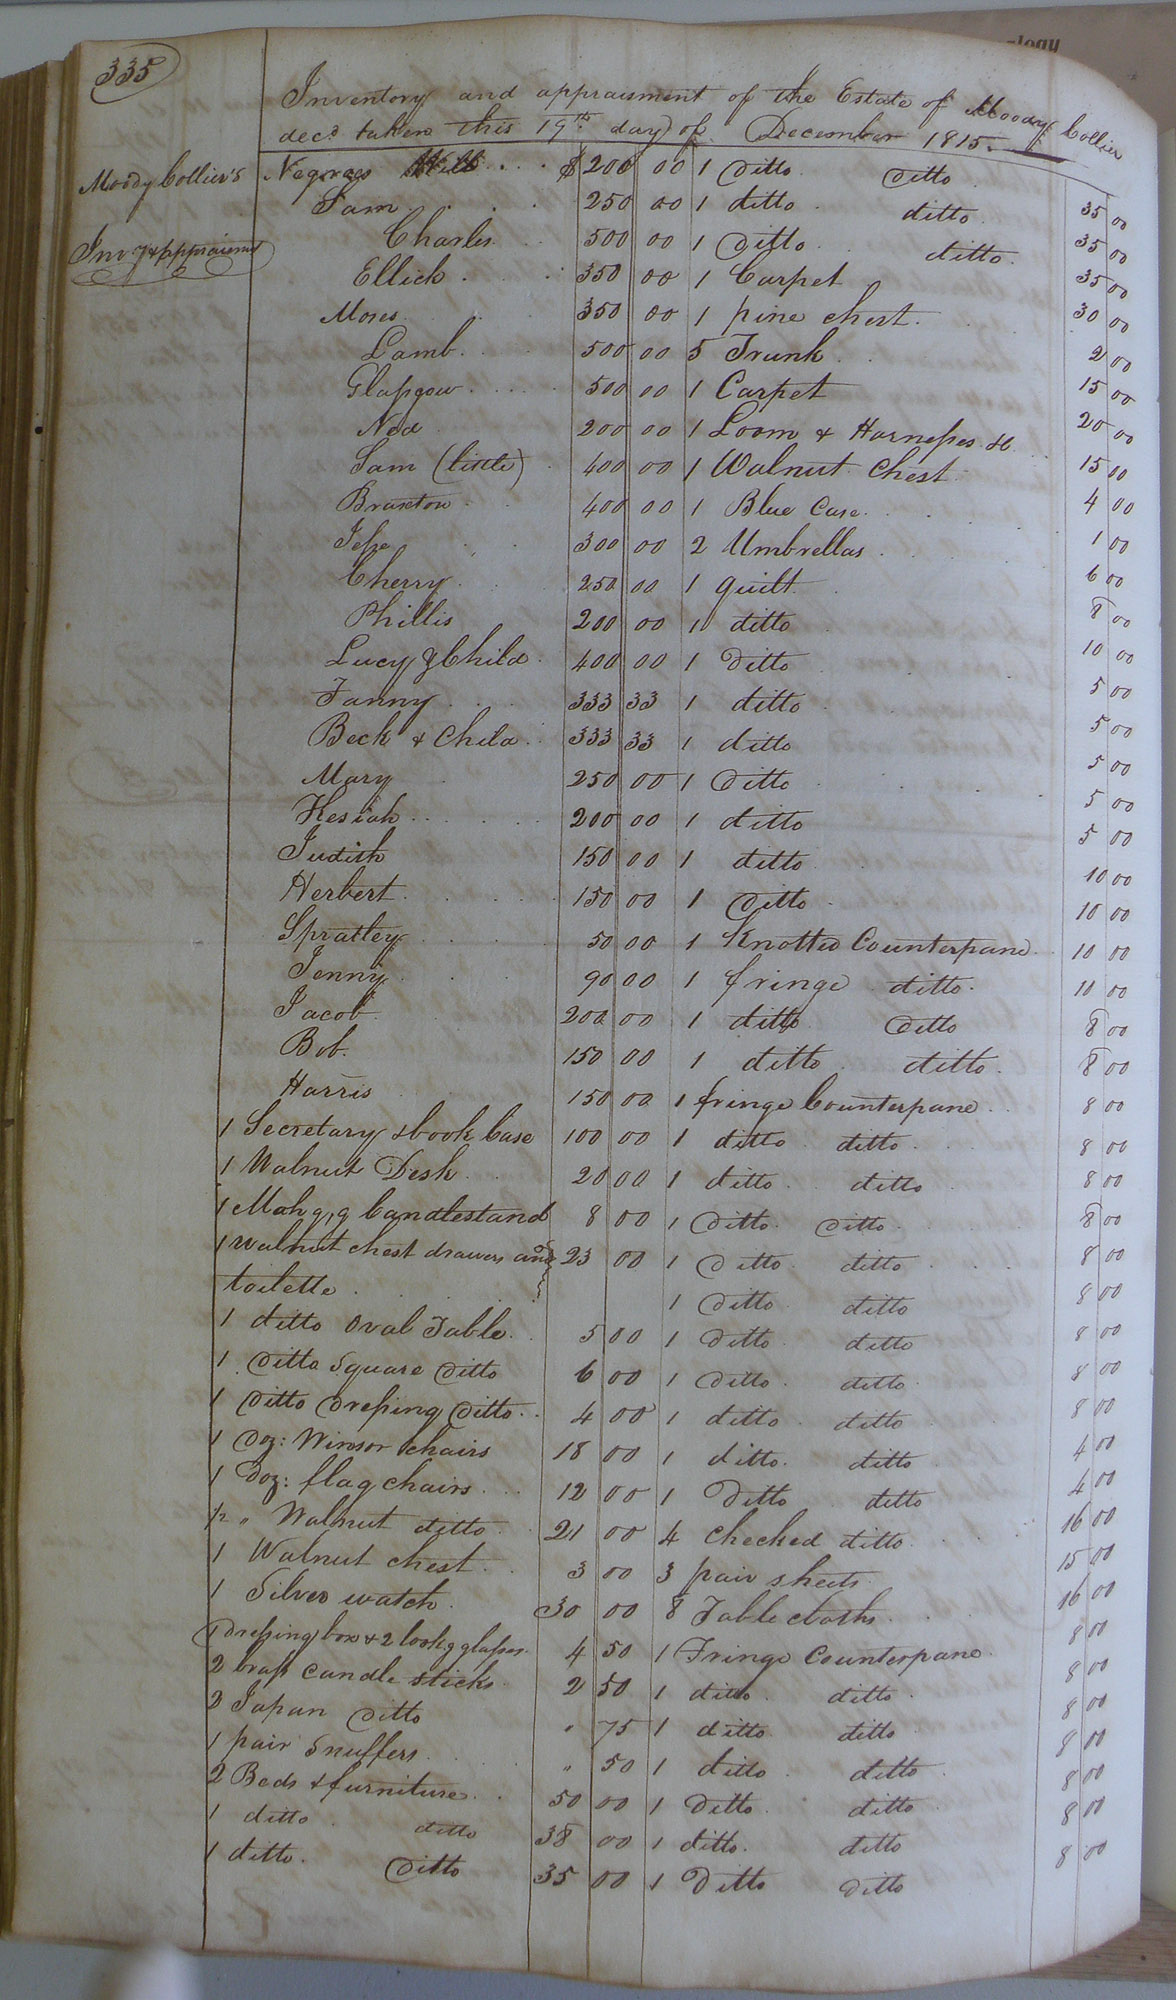 335
Inventory and appraisment of the Estate of Moody Collier
decd. taken this 19th day of December 1815.
Moody Collier's
Inv.y & appraisemt
Negroes Will $ 200 00
Sam 250 00
Charles 500 00
Ellick 350 00
Moses 350 00
Lamb 500 00
Glasgow 500 00
Ned 200 00
Sam (little) 400 00
Braxton 400 00
Jesse 300 00
Cherry 250 00
Phillis 200 00
Lucy & Child 400 00
Fanny 333 33
Beck & Child 333 33
Mary 250 00
Kesiah 200 00
Judith 150 00
Herbert 150 00
Spratley 50 00
Jenny 90 00
Jacob 200 00
Bob. 150 00
Harris 150 00
1 Secretary & book Case 100 00
1 Walnut Desk 20 00
1 Mahg,g Candlestand 8 00
1 walnut chest drawers and 23 00
toilette
1 ditto Oval Table 5 00
1 Ditto Square Ditto 6 00
1 Ditto Dressing Ditto 4 00
1 Doz: Winsor chairs 18 00
1 Doz: flag chairs 12 00
1/2 " Walnut ditto 21 00
1 Walnut chest 3 00
1 Silver watch 30 00
1 Dressing box & 2 look,g glasses 4 50
2 brass candle sticks 2 50
2 Japan Ditto " 75
1 pair Snuffers " 50
2 Beds & furniture 50 00
1 ditto ditto 38 00
1 ditto. Ditto 35 00
1 Ditto Ditto 35 00
1 ditto ditto 35 00
1 Ditto ditto 35 00
1 Carpet 30 00
1 pine chest 2 00
5 Trunk 15 00
1 Carpet 20 00
1 Loom & Harnesses &c 15 00
1 Walnut Chest 4 00
1 Blue Case 1 00
2 Umbrellas 6 00
1 quilt 8 00
1 ditto 10 00
1 Ditto 5 00
1 ditto 5 00
1 ditto 5 00
1 Ditto 5 00
1 ditto 5 00
1 ditto 10 00
1 Ditto 10 00
1 Knotted Counterpane 10 00
1 fringe ditto 10 00
1 ditto Ditto 8 00
1 ditto ditto 8 00
1 fringe Counterpane 8 00
1 ditto ditto 8 00
1 ditto ditto 8 00
1 Ditto Ditto 8 00
1 Ditto ditto 8 00
1 Ditto ditto 8 00
1 Ditto ditto 8 00
1 Ditto ditto 8 00
1 ditto ditto 8 00
1 ditto. ditto 4 00
1 Ditto ditto 4 00
4 checked ditto 16 00
3 pair sheets 15 00
8 Table cloths 16 00
1 Fringe Counterpane 8 00
1 ditto ditto 8 00
1 ditto ditto 8 00
1 ditto ditto 8 00
1 Ditto ditto 8 00
1 ditto. ditto 8 00
1 Ditto ditto 8 00